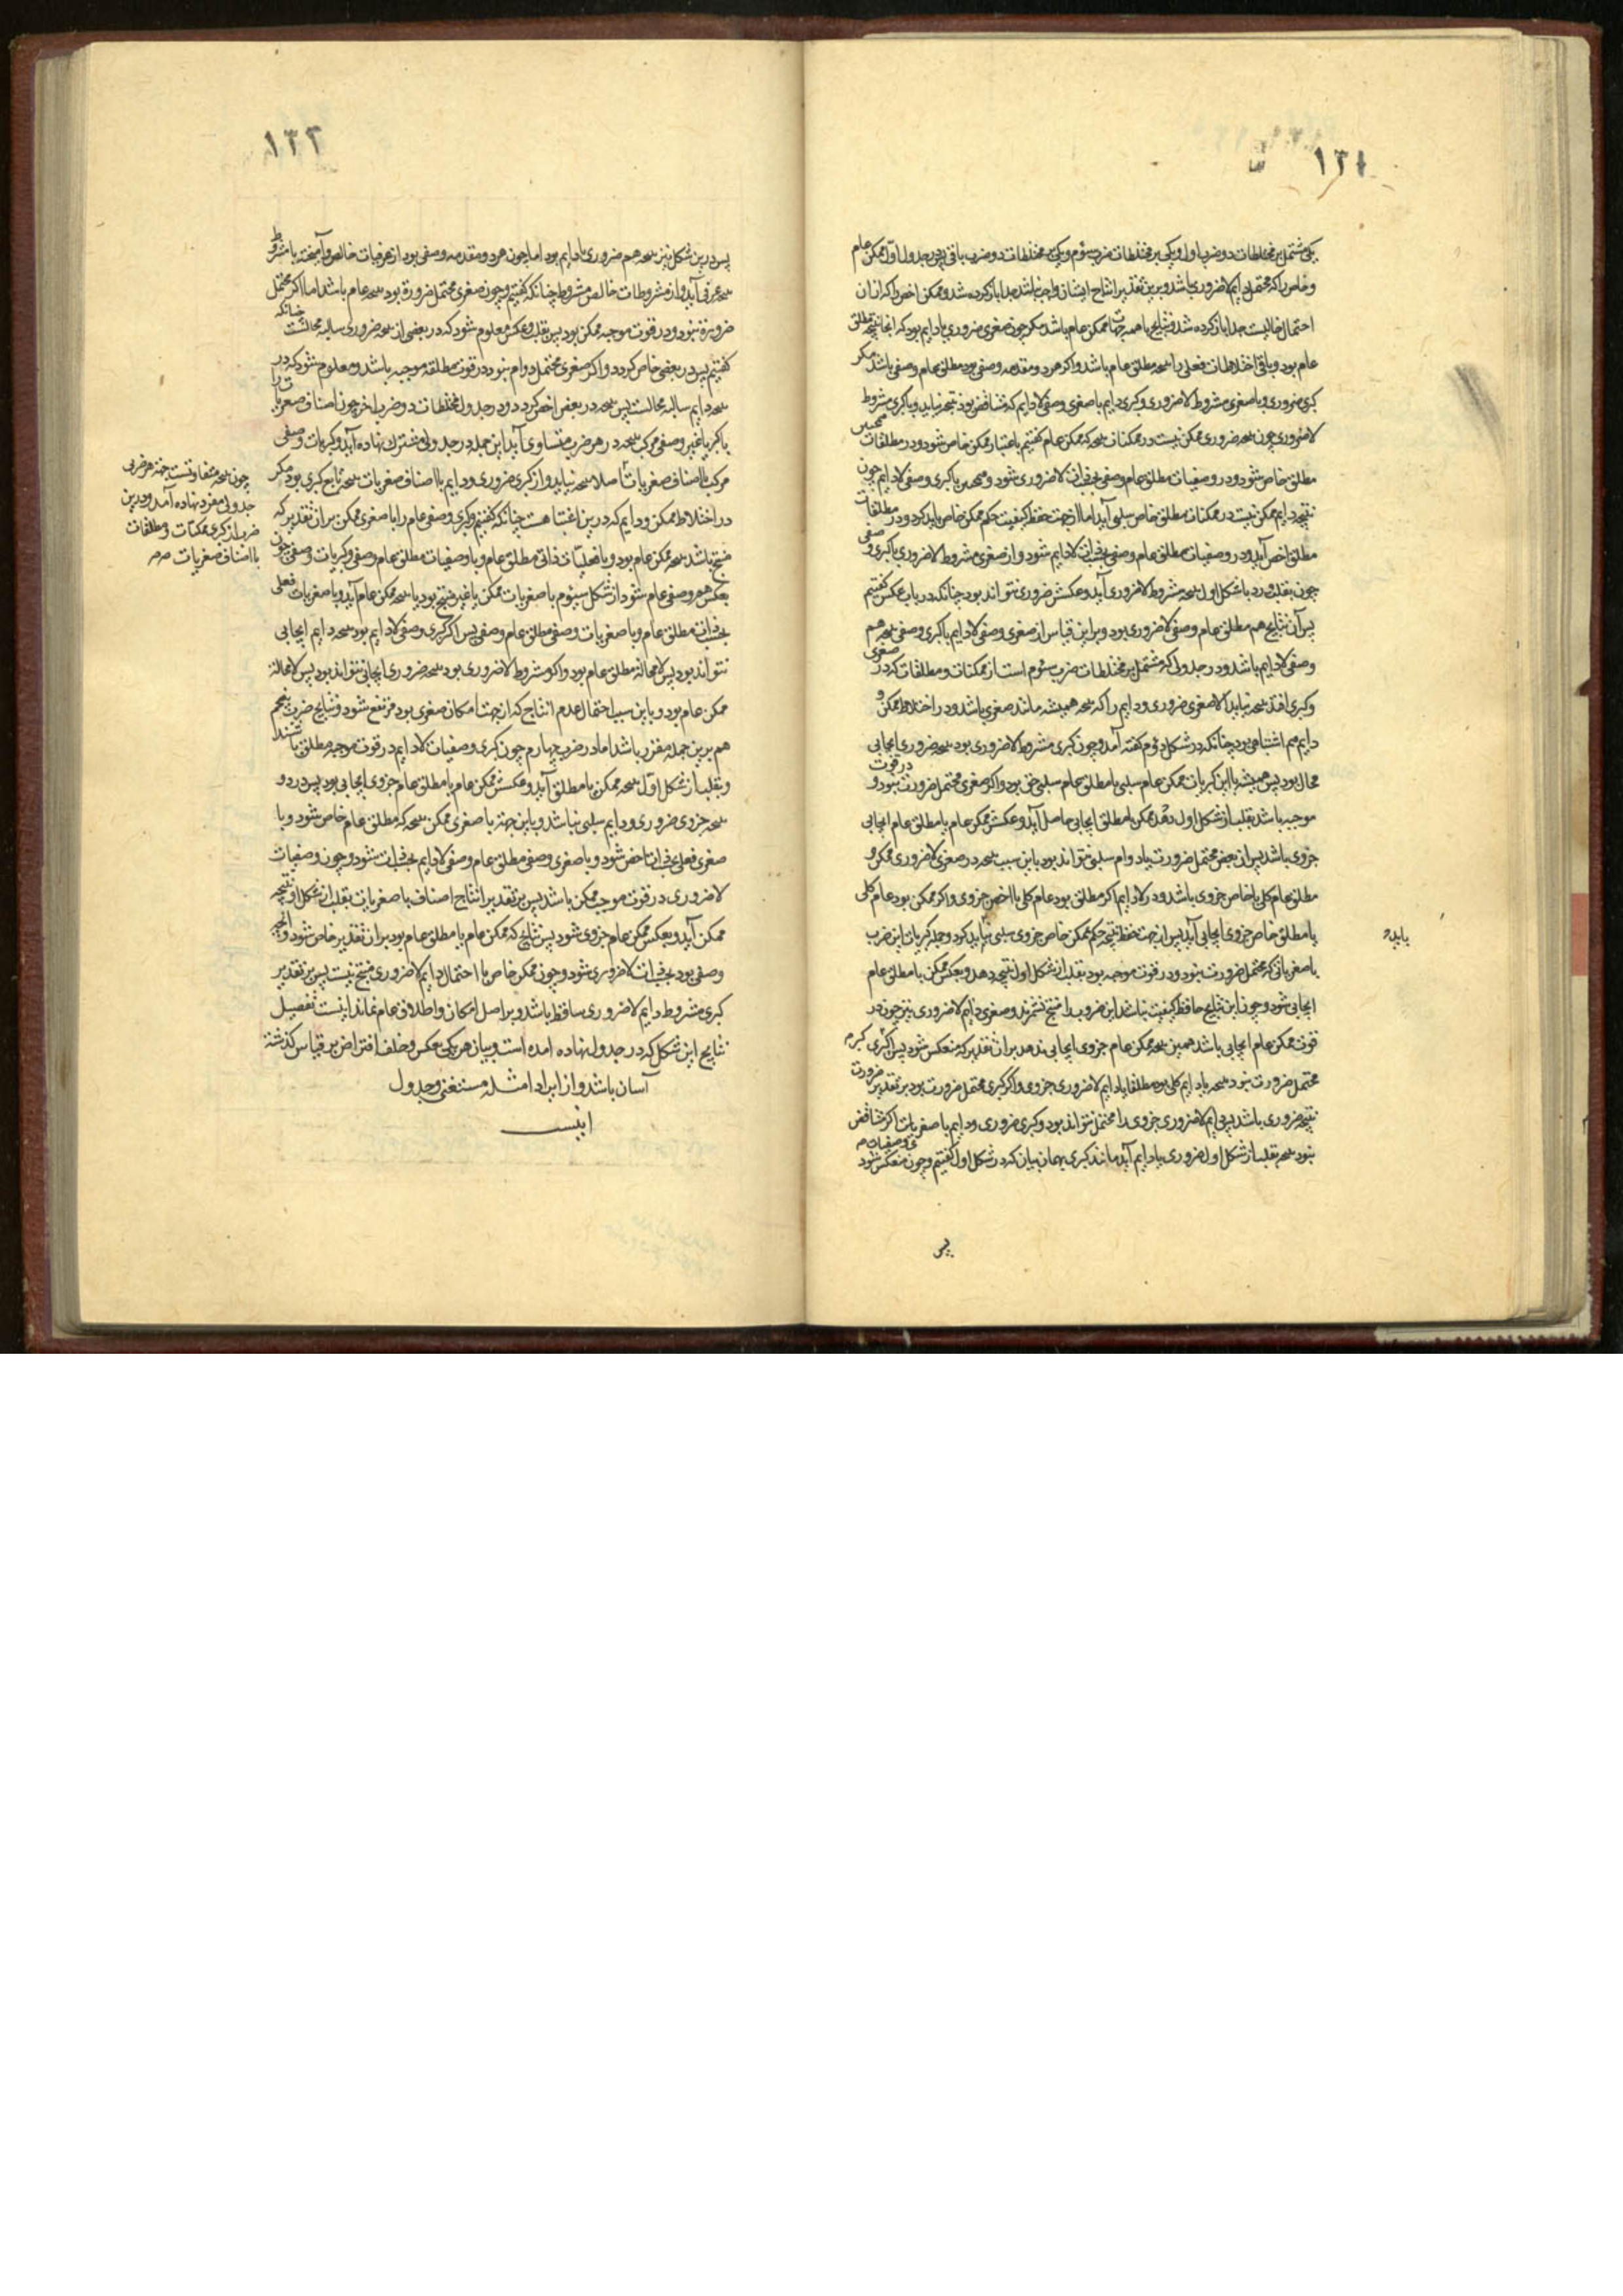 ۱۳۱
یکی مشتمل بر مختلطات دو ضرب اول و یکی بر مختلطات ضرب سوم و یکی بر مختلطات دو ضرب باقی پس در جدول اول ممکن عام
و خاص را که محتمل دایم لاضروری باشد و برین تقدیر انتاج ایشان واجب باشد جدا باز کرده شد و ممکن اخص را که از ان
احتمال خالیست جدا باز کرده شد و نتایج با همه جهات ممکن عام باشد مگر چون صغری ضروری یا دایم بود که انجا نتیجه مطلق
عام بود و باقی اختلاطات فعلی را نتیجه مطلق عام باشد و اگر هر دو مقدمه وصفی بود مطلق عام وصفی باشد مگر
کبری ضروری و با صغری مشروط لاضروری و کبری دایم با صغری وصفی لادایم که متناقض بود نتیجه نیاید و با کبری مشروط
لاضروری چون نتیجه ضروری ممکن نیست در ممکنات نتیجه که ممکن عام گفتیم باعتبار ممکن خاص شود و در مطلقات
مطلق خاص شود و در وصفیات مطلق عام وصفی بحسب ذات لاضروری شود و همچنین با کبری وصفی لادایم چون
نتیجه دایم ممکن نیست در ممکنات مطلق خاص سلبی آید اما از جهت حفظ کیفیت حکم ممکن خاص باید کرد و در مطلقات
مطلق اخص آید و در وصفیات مطلق عام وصفی بحسب ذات لادایم شود و از صغری مشروط لاضروری با کبری وصفی
چون بقلب رد با شکل اول نتیجه مشروط لاضروری آید و عکسش ضروری نتواند بود چنانکه در باب عکس گفتیم
پس آن نتایج هم مطلق عام وصفی لاضروری بود و برین قیاس از صغری وصفی لادایم با کبری وصفی نتیجه هم
وصفی لادایم باشد و در جدولی که مشتمل بر مختلطات ضرب سوم است از ممکنات و مطلقات که در صغری
و کبری افتد نتیجه نیاید الا صغری ضروری و دایم را که نتیجه همیشه مانند صغری باشد و در اختلاط ممکن و
دایم هم اشتباهی بود چنانکه در شکل دوم گفته آمد و چون کبری مشروط لاضروری بود نتیجه ضروری ایجابی
محال بود پس همیشه با این کبریات ممکن عام سلبی یا مطلق عام سلبی حق بود و اگر صغری محتمل ضرورت نبود و در قوت
موجبه باشد بقلب از شکل اول بعد ممکن یا مطلق ایجابی حاصل آید و عکسش ممکن عام یا مطلق عام ایجابی
جزوی باشد پس ان بعض محتمل ضرورت یا دوام سلبی نتواند بود باین سبب نتیجه در صغری لاضروری ممکن و
مطلق عام کلی یا خاص جزوی باشد و در لادایم اگر مطلق بود عام کلی یا اخص جزوی و اگر ممکن بود عام کلی
یا مطلق خاص جزوی ایجابی آید پس از جهت حفظ نتیجه حکم ممکن خاص جزوی سلبی بباید کرد و جمله کبریات این ضرب
با صغریاتی که محتمل ضرورت نبود و در قوت موجبه بود بقلب از شکل اول نتیجه دهد و بعکس ممکن یا مطلق عام
ایجابی شود و چون این نتایج حافظ کیفیت نباشد این ضروب را منتج نشمرند و صغری دایم لاضروری نیز چون در
قوت ممکن عام ایجابی باشد همین نتیجه ممکن عام جزوی ایجابی بدهد بران تقدیر که منعکس شود پس اگر کبری
محتمل ضرورت نبود نتیجه یا دایم کلی بود مطلقا یا دایم لاضروری جزوی و اگر کبری محتمل ضرورت بود بر تقدیر ضرورت
نتیجه ضروری باشد پس دایم لاضروری جزوی را محتمل نتواند بود و کبری ضروری و دایم با صغریات اگر متناقض
نبود نتیجه بقلب از شکل اول ضروری یا دایم آید مانند کبری بهمان بیان که در شکل اول گفتیم و چون منعکس شود
پس
باید
۱۳۲
پس درین شکل نیز نتیجه هم ضروری یا دایم بود اما چون هر دو مقدمه وصفی بود از عرفیات خالص و آمیخته با مشروط
نتیجه عرفی آید و از مشروطات خالص مشروط چنانکه گفتیم و چون صغری محتمل ضرورة بود نتیجه عام باشد اما اگر محتمل
ضرورة نبود و در قوت موجبه ممکن بود پس بقلب و عکس معلوم شود که در بعضی از نتیجه ضروری سالبه محالست چنانکه
گفتیم پس در بعضی خاص گردد و اگر صغری محتمل دوام نبود در قوت مطلقه موجبه باشد و معلوم شود که در
نتیجه دایم سالبه محالست پس نتیجه در بعض اخص گردد و در جدول مختلطات دو ضرب اخر چون اصناف صغریات
با کبریات غیر وصفی مرکب نتیجه در هر ضرب متساوی آید این جمله در جدولی مشترک نهاده آید و کبریات وصفی
مرکب با اصناف صغریات اصلا نتیجه نیاید و از کبری ضروری و دایم با اصناف صغریات نتیجه تابع کبری بود مگر
در اختلاط ممکن و دایم که درین اشتباهست چنانکه گفتیم و کبری وصفی عام را با صغری ممکن بران تقدیر که
منتج باشد نتیجه ممکن عام بود و با فعلیات ذاتی مطلق عام و با وصفیات مطلق عام وصفی و کبریات وصفی چون
بعکس هم وصفی عام شود از شکل سیوم با صغریات ممکن یا غیر منتج بود یا نتیجه ممکن عام آید و با صغریات فعلی
بحسب ذات مطلق عام و با صغریات وصفی مطلق عام وصفی پس اگر کبری وصفی لادایم بود نتیجه دایم ایجابی
نتواند بود پس لامحاله مطلق عام بود و اگر مشروط لاضروری بود نتیجه ضروری ایجابی نتواند بود پس لامحالة
ممکن عام بود و باین سبب احتمال عدم انتاج که از جهت امکان صغری بود مرتفع شود و نتایج ضرب پنجم
هم برین جمله مقرر باشد اما در ضرب چهارم چون کبری وصفیات لادایم در قوت موجبه مطلق باشند
و بقلب از شکل اول نتیجه ممکن یا مطلق آید و عکسش ممکن عام یا مطلق عام جزوی ایجابی بود پس در دو
نتیجه جزوی ضروری و دایم سلبی نباشد و باین جهة با صغری ممکن نتیجه که مطلق عام خاص شود و با
صغری فعلی بحسب ذات اخص شود و با صغری وصفی مطلق عام وصفی لادایم بحسب ذات شود و چون وصفیات
لاضروری در قوت موجبه ممکن باشد پس بر تقدیر انتاج اصناف با صغریات بقلب از شکل اول نتیجه
ممکن آید و بعکس ممکن عام جزوی شود پس نتایج که ممکن عام یا مطلق عام بود بران تقدیر خاص شود و آنچه
وصفی بود بحسب ذات لاضروری شود و چون ممکن خاص با احتمال دایم لاضروری منتج نیست پس بر تقدیر
کبری مشروط دایم لاضروری ساقط باشد و بر اصل امکان و اطلاق عام نماند اینست تفصیل
نتایج این شکل که در جدول نهاده امده است و بیان هر یکی بعکس و خلف و افتراض بر قیاس گذشته
آسان باشد و از ایراد امثله مستغنی و جدول
اینست
چون نتیجه متفاوتست جهة هر ضربی
جدولی مفرد نهاده آمد و درین
ضرب از کبری ممکنات و مطلقات
با اصناف صغریات